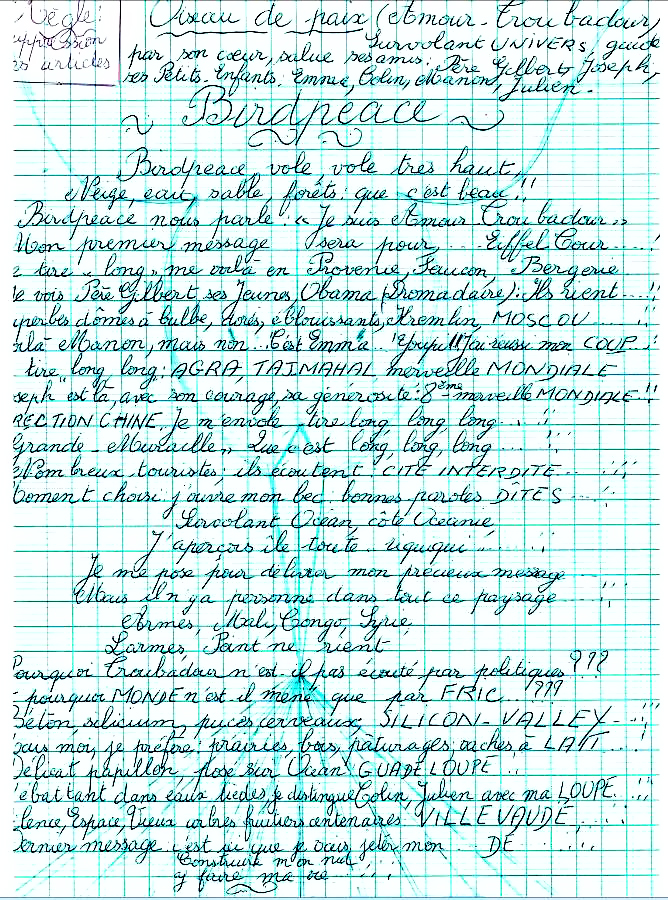 Règle:
suppression
articles
Oiseau de paix (Amour-Troubadour)
Survolant UNIVERS, guidé
par son cœur, salue ses amis: Père Gilbert, Joseph,
ses Petits-Enfants: Emma, Colin, Manon, Julien.
Birdpeace
Birdpeace vole, vole très haut,
Neige, eau, sable, forêts: que c'est beau!!
Birdpeace nous parle: "Je suis Amour Troubadour"
Mon premier message sera pour... Eiffel Tour...!
tire "long" me voilà en Provence, Faucon, Bergerie
Je vois Père Gilbert, ses Jeunes, Obama (Dromadaire): Ils rient...!!
superbes dômes à bulbe, dorés, éblouissants, Kremlin, MOSCOU...
Voilà Manon, mais non... C'est Emma "Youpi!! J'ai réussi mon COUP...!
tire, long, long: AGRA, TAJMAHAL merveille MONDIALE
Joseph est là, avec son courage, sa générosité: 8ème merveille MONDIALE!!
DIRECTION CHINE. Je m'envole, tire long, long, long...!!
Grande-Muraille, Que c'est long, long, long...!!
Nombreux touristes; ils écoutent: CITÉ INTERDITE...!!
Moment choisi j'ouvre mon bec: bonnes paroles DITES...!!
Survolant Océan, côté Océanie,
J'aperçois île toute... riquiqui...!!
Je me pose pour délivrer mon précieux message
Mais il n'y a personne dans tout ce paysage
Armes, Mali, Congo, Syrie,
Larmes, Point ne rient
Pourquoi Troubadour n'est-il pas écouté par politiques???
pourquoi MONDE n'est-il mené que par FRIC...???
Béton, silicium, puces cerveaux, SILICON-VALLEY...!!
mais moi, je préfère: prairies, bois, pâturages, vaches à LAIT...!
Délicat papillon, posé sur Océan GUADELOUPE...
S'ébattant dans eaux tièdes, je distingue Colin, Julien avec ma LOUPE...!!
Silence, Espace, Vieux arbres fruitiers centenaires VILLEVAUDÉ,
Dernier message c'est ici que je vais jeter mon DÉ...!!
Construire mon nid,
y faire ma vie...!!